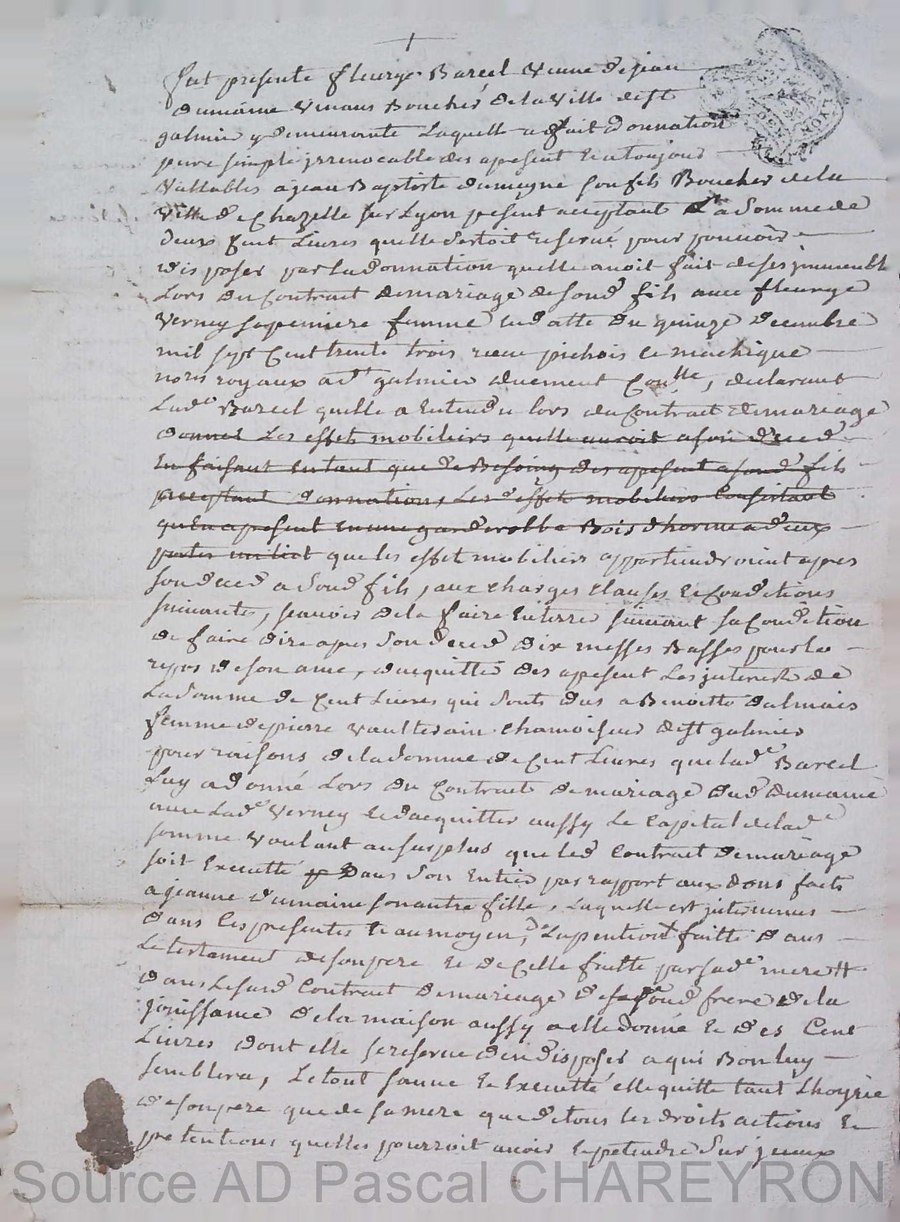 fut presente fleurye Barcel Veuve de jean
dumaine vivant Boucher de la Ville de st
galmier y demeurante laquelle a fait donnation
pure simple jrrevocable des apesent et a toujours
Vallables a jean Baptiste dumayne son fils Boucher de la
Ville de Chazelle sur Lyon present acceptant La somme de
deux Cent Livres quelle sestoit reservé pour pouvoir
disposer par la donnation quelle avoit fait de ses jmmeubl
Lors du Contract de mariage de sond fils avec fleurye
Verney sa premiere femme en datte du quinze decembre
mil sept Cent trente trois receu pichois et machique
nores royaux a st galmier duement Conlle, declarant
Lade Barcel quelle a Entendu lors du Contract de mariage
donner Les effets mobiliers quelle auroit a son deced
En faisant en tant que de Besoing des apesent a sond fils
acceptant donnation, Les d effets mobiliers Consistant
qu En apresent en une garderobbe Bois dhorme a deux
portes un lict que les effet mobiliers appartiendroient apres
son deced a sond fils, aux charges clauses et Conditions
suivantes, scavoir de la faire Enterrer suivant sa Condition
de faire dire apres son deced dix messes Basses pour le
repos de son ame, dacquitter des apesent Les jnterest de
La somme de Cent Livres qui sont dus a Benoitte dalmais
femme de pierre vaulterain chamoiseur de st galmier
pour raisons de la somme de Cent Livres que lade Barcel
Luy a donné Lors du Contract de mariage dud dumaine
avec Lade Verney et dacquitter aussy Le Capital de lade
somme Voulant au surplus que led Contract de mariage
soit Executté dans son Entier par rapport aux dons faits
a jeanne dumaine son autre fille, Laquelle est jntervenus
dans les presentes et au moyen, de La pention faitte dans
Le testament de son pere et de Celle faitte par sade mere #
dans Le susd Contract de mariage de sond frere de la
jouissance de la maison aussy a elle donné et des Cent
Livres dont elle se reserve den disposer a qui Bon luy
semblera, Le tout sauve et Executté elle quitte tant Lhoyrie
de son pere que de sa mere que de tous les droits actions et
pretentions quelles pourroit avoir et pretendre sur jceux
Source AD Pascal CHAREYRON